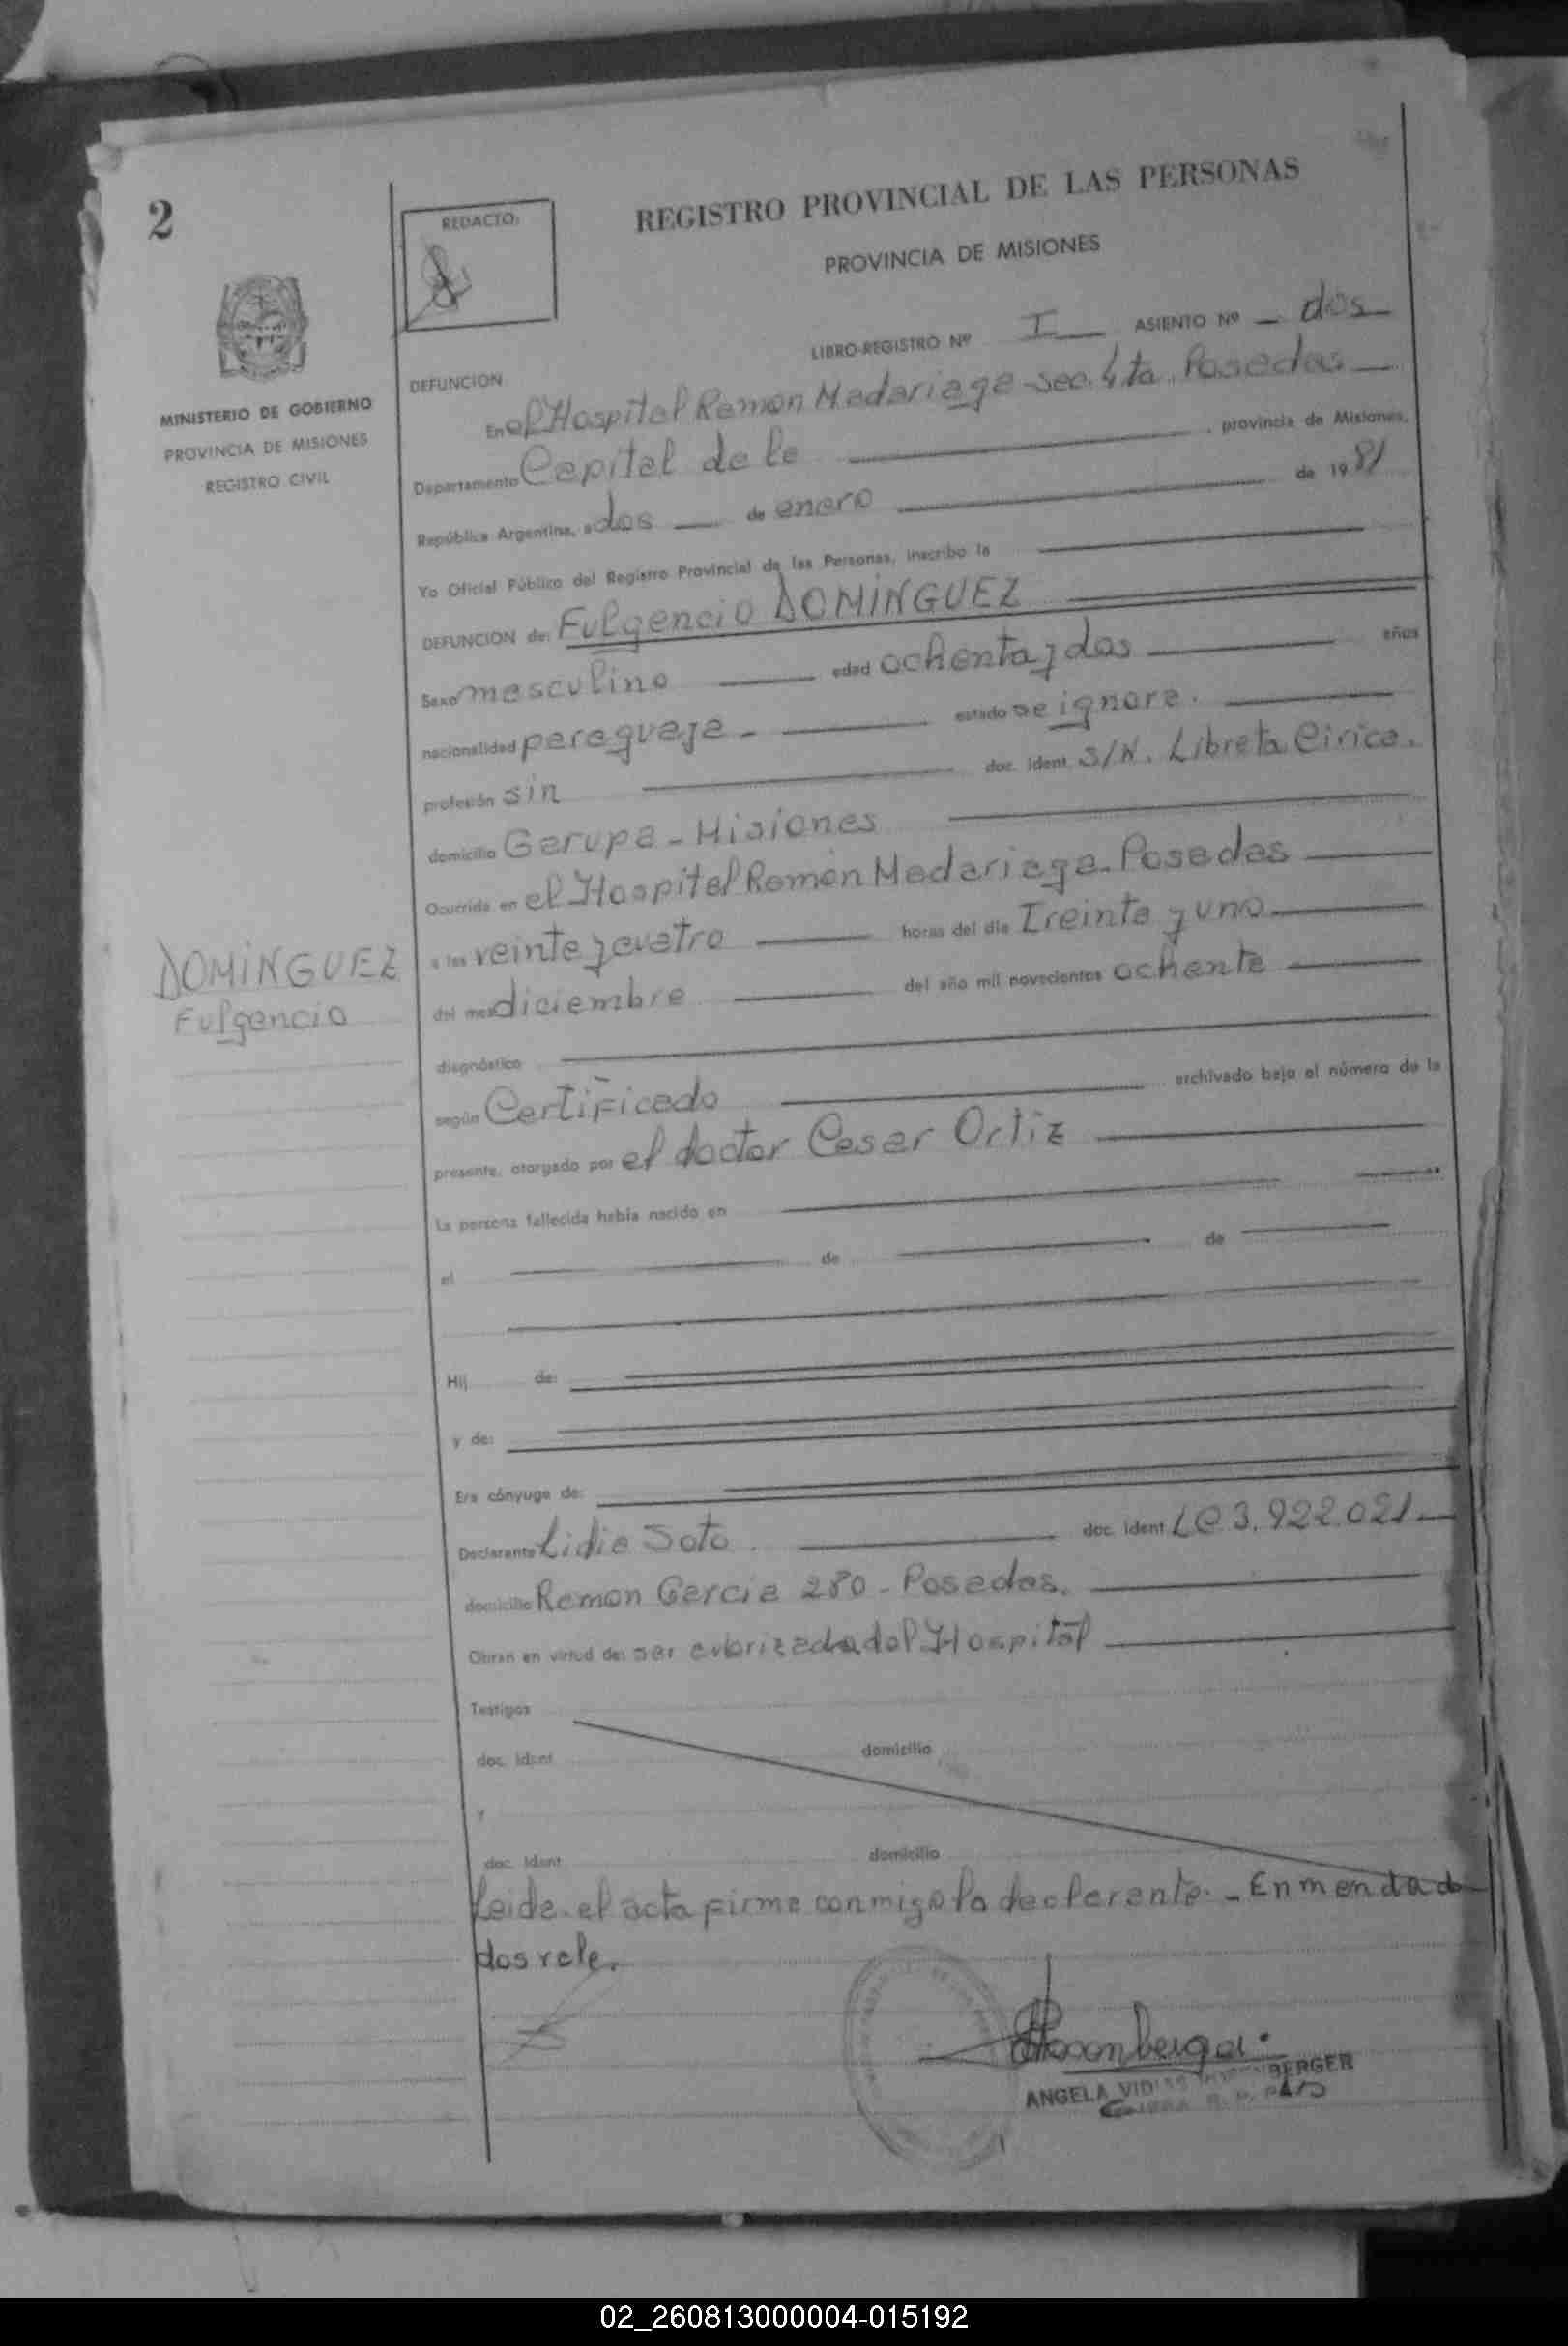 2
REDACTO:
REGISTRO PROVINCIAL DE LAS PERSONAS
PROVINCIA DE MISIONES
MINISTERIO DE GOBIERNO
PROVINCIA DE MISIONES
REGISTRO CIVIL
LIBRO-REGISTRO Nº I ASIENTO Nº dos
DEFUNCION
En el Hospital Ramon Madariaga - sec. 4ta. Posadas
Departamento Capital de la , provincia de Misiones,
República Argentina, a dos de enero de 1981
Yo Oficial Público del Registro Provincial de las Personas, inscribo la
DEFUNCION de: Fulgencio DOMINGUEZ
Sexo masculino edad ochenta y dos años
nacionalidad paraguaya - estado se ignora.
profesión sin doc. ident. S/N. Libreta Civica.
domicilio Garupa - Misiones
Ocurrida en el Hospital Ramón Madariaga - Posadas
a las veinte y cuatro horas del día Treinta y uno
del mes diciembre del año mil novecientos ochenta
DOMINGUEZ
Fulgencio
diagnóstico
según Certificado archivado bajo el número de la
presente, otorgado por el doctor Cesar Ortiz
La persona fallecida había nacido en
el de de
Hij de:
y de:
Era cónyuge de:
Declarante Lidia Soto. doc. ident. LC 3.922.021
domicilio Ramon Garcia 280 - Posadas.
Obran en virtud de: ser autorizada del Hospital
Testigos
doc. Ident. domicilio
y
doc. Ident. domicilio
Leida el acta firma conmigo la declarante. - Enmendado
dos vale.
ANGELA BERGER
02_260813000004-015192